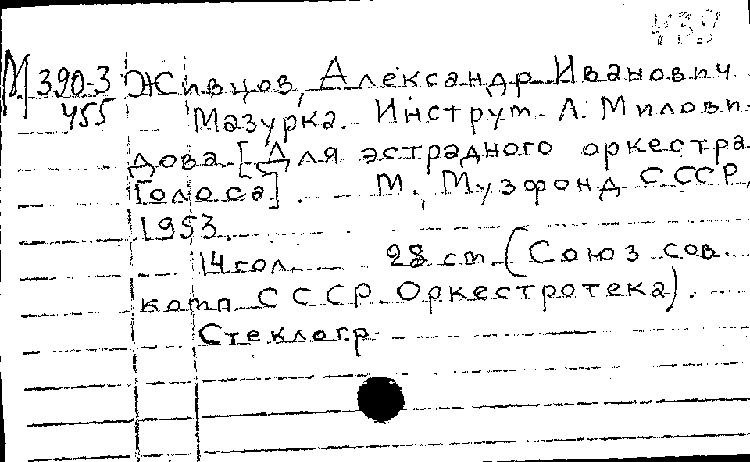 439
М 390-3 Живцов, Александр Иванович
455 Мазурка. Инструм. А. Милови-
дова. [Для эстрадного оркестра
Голоса]. М., Музфонд СССР,
1953.
14 гол. 28 см. (Союз сов.
комп. СССР. Оркестротека).
Стеклогр.